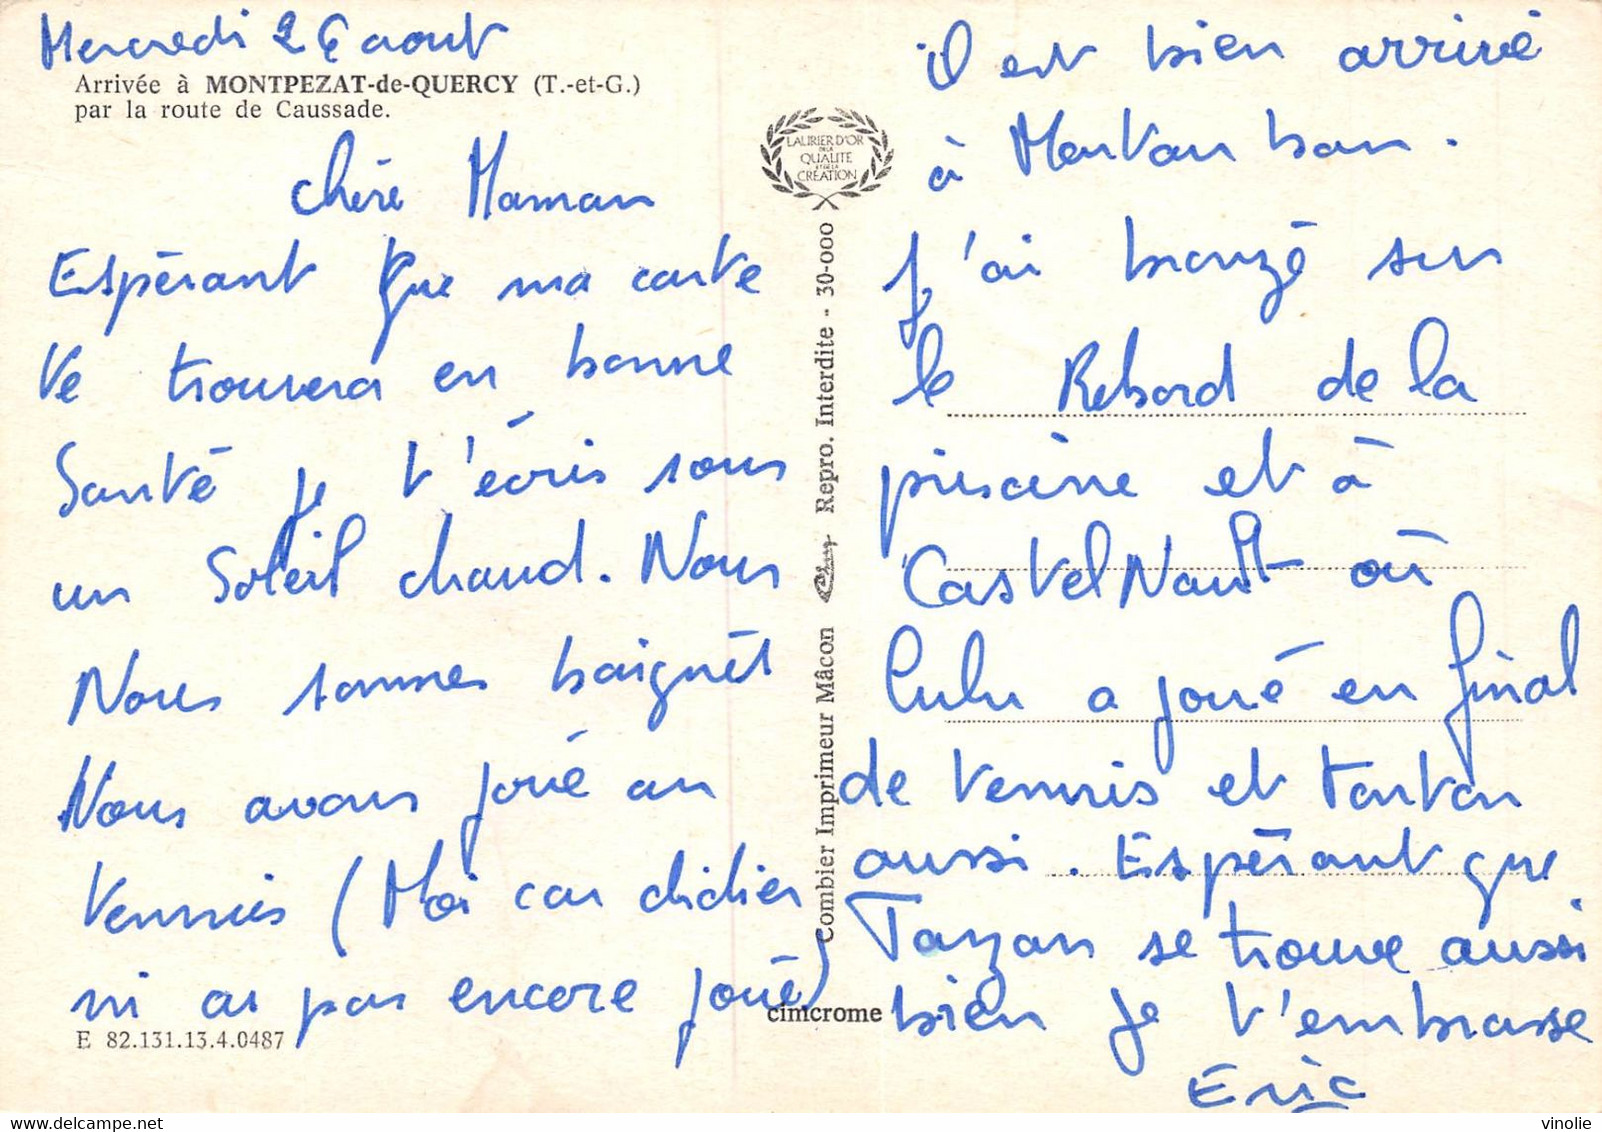 Mercredi 26 aout
Arrivée à MONTPEZAT-de-QUERCY (T.-et-G.)
par la route de Caussade.
chère Maman
Espérant que ma carte
te trouvera en bonne
Santé je t'écris sous
un Soleil chaud. Nous
Nous sommes baignét
Nous avons joué au
tennies (Moi car didier
ni as pas encore joué)
E 82.131.13.4.0487
LAURIER D'OR
DE LA
QUALITÉ
ET DE LA
CRÉATION
Combier Imprimeur Mâcon Repro. Interdite - 30-000
cimcrome
il est bien arrivé
à Montauban.
j'ai bronzé sur
le Rebord de la
piscine et à
CastelNault où
Lulu a joué en final
de tennis et tonton
aussi. Espérant que
Tarzan se trouve aussi
bien je t'embrasse
Eric
vinolie